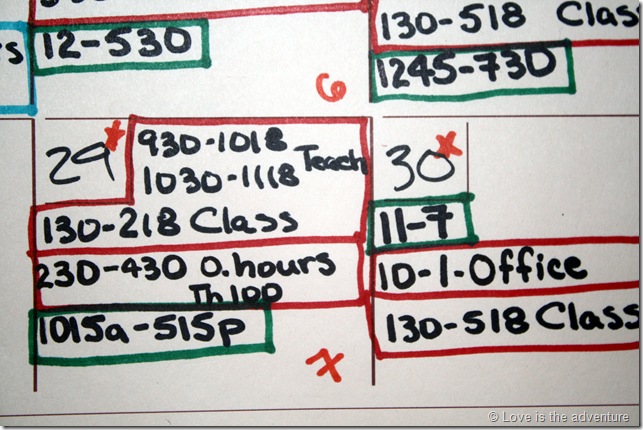 s
12-530
6
130-518 Class
1245-730
29
930-1018
1030-1118 Teach
130-218 Class
230-430 O.hours
Th100
1015a-515p
7
30
11-7
10-1-Office
130-518 Class
© Love is the adventure